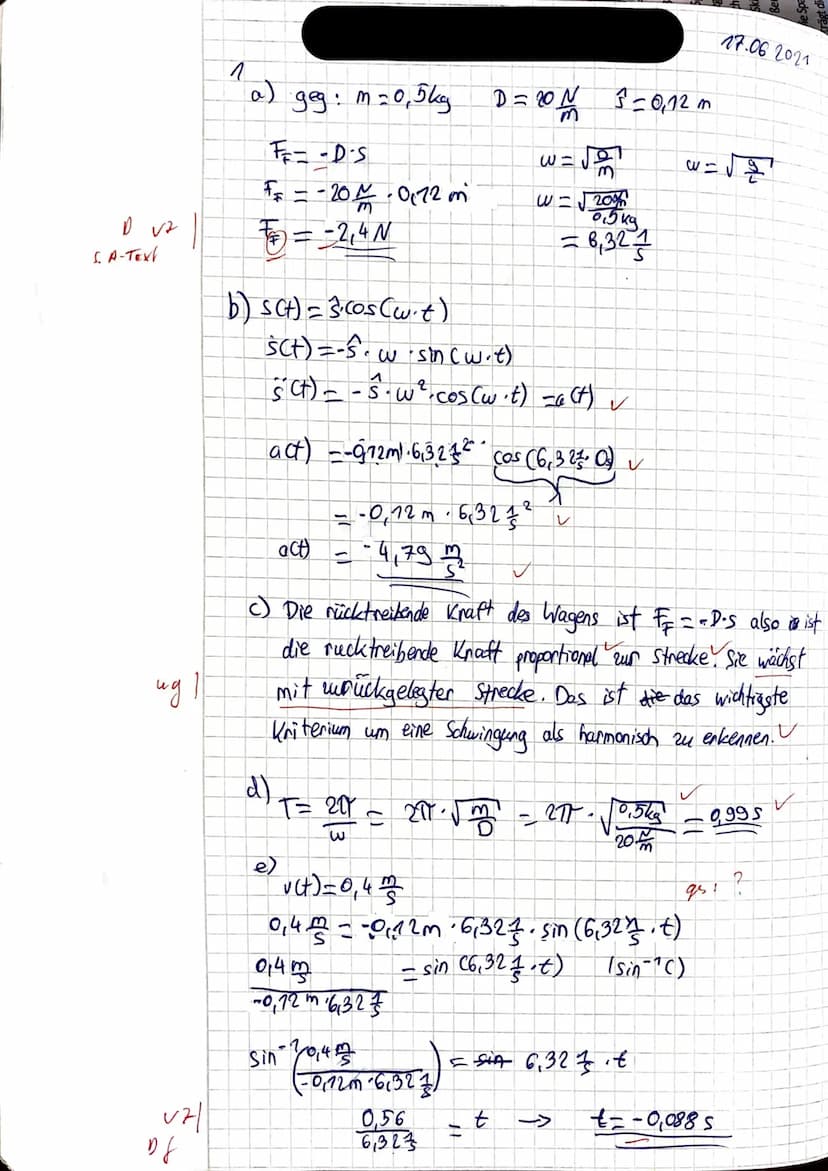 17.06 2021
1
a) geg: m=0,5kg D=20 N/m ŝ=0,12 m
F_F = -D·s ω=√(D/m) ω=√(g/L)
F_F = -20 N/m · 0,12 m ω=√(20 N/m / 0,5kg)
D VZ | F_F = -2,4 N = 6,32 1/s
s. A-Text
b) s(t) = ŝ·cos(ω·t)
ṡ(t) = -ŝ·ω·sin(ω·t)
s̈(t) = -ŝ·ω²·cos(ω·t) = a(t) ✓
a(t) = -0,12m·6,32 1/s² · cos(6,32 1/s·0s) ✓
1
= -0,12m · 6,32 1/s² ✓
a(t) = -4,79 m/s² ✓
c) Die rücktreibende Kraft des Wagens ist F_F = -D·s also ist
die rucktreibende Kraft proportional ✓ zur Strecke. ✓ Sie wächst
ug | mit zurückgelegter Strecke. Das ist die das wichtigste
Kriterium um eine Schwingung als harmonisch zu erkennen. ✓
d) T = 2π/ω = 2π·√(m/D) = 2π·√(0,5kg / 20 N/m) ✓ = 0,99s ✓
e)
v(t)=0,4 m/s gs: ?
0,4 m/s = -0,12m · 6,32 1/s · sin(6,32 1/s · t)
0,4 m/s / -0,12m·6,32 1/s = sin(6,32 1/s · t) |sin⁻¹()
sin⁻¹(0,4 m/s / -0,12m·6,32 1/s) = sin 6,32 1/s · t
VZ | 0,56 / 6,32 1/s = t → t = -0,088 s
Df